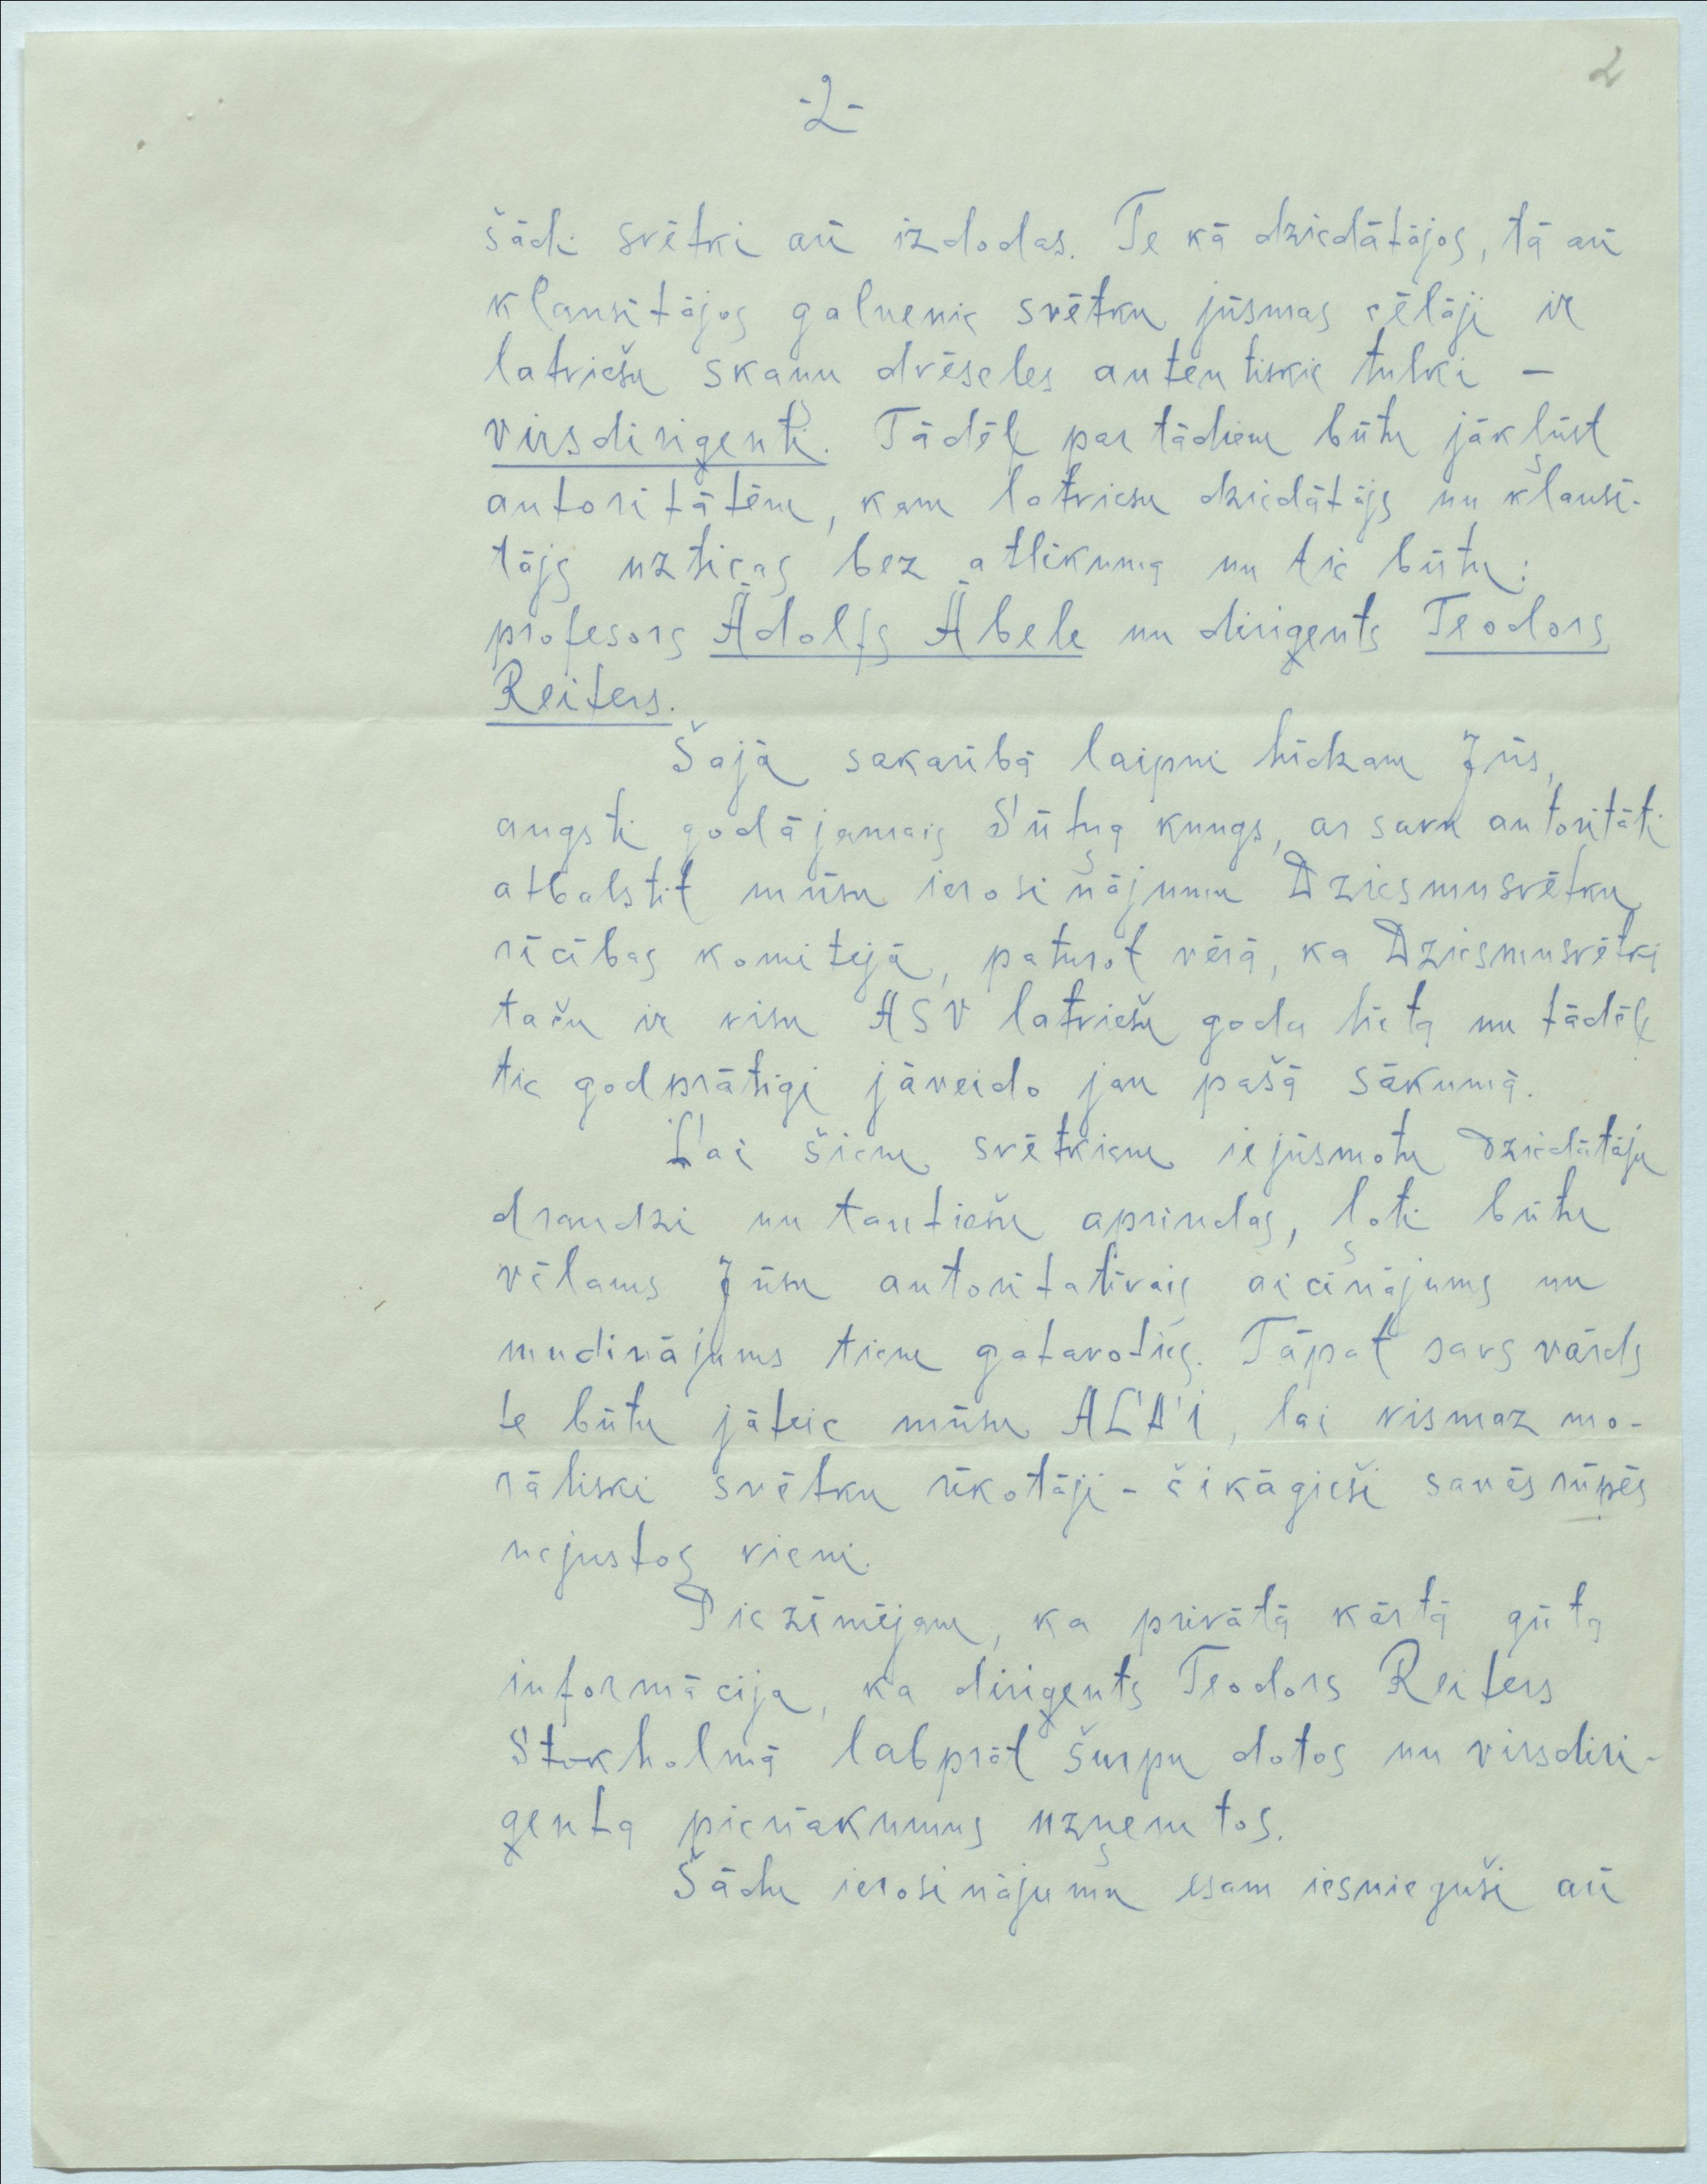 2
-2-
šādi svētki arī izdodas. Te kā dziedātājos, tā arī
klausītājos galvenie svētku jūsmas cēlāji ir
latviešu skaņu dvēseles autentiskie tulki –
virsdiriģenti. Tādēļ par tādiem būtu jākļūst
autoritātēm, kam latviešu dziedātājs un klausī-
tājs uzticas bez atlikuma un tie būtu:
profesors Ādolfs Ābele un diriģents Teodors
Reiters.
Šajā sakarībā laipni lūdzam Jūs,
augsti godājamais Sūtņa kungs, ar savu autoritāti
atbalstīt mūsu ierosinājumu Dziesmusvētku
rīcības komitejā, paturot vērā, ka Dziesmusvētki
taču ir visu ASV latviešu goda lieta un tādēļ
tie godprātīgi jāveido jau pašā sākumā.
Lai šiem svētkiem iejūsmotu dziedātāju
draudzi un tautiešu aprindas, ļoti būtu
vēlams Jūsu autoritatīvais aicinājums un
mudinājums tiem gatavoties. Tāpat savs vārds
te būtu jāteic mūsu ALA'i, lai vismaz mo-
rāliski svētku rīkotāji - čikāgieši savās rūpēs
nejustos vieni.
Piezīmējam, ka privātā kārtā gūta
informācija, ka diriģents Teodors Reiters
Stokholmā labprāt šurpu dotos un virsdiri-
ģenta pienākumus uzņemtos.
Šādu ierosinājumu esam iesnieguši arī